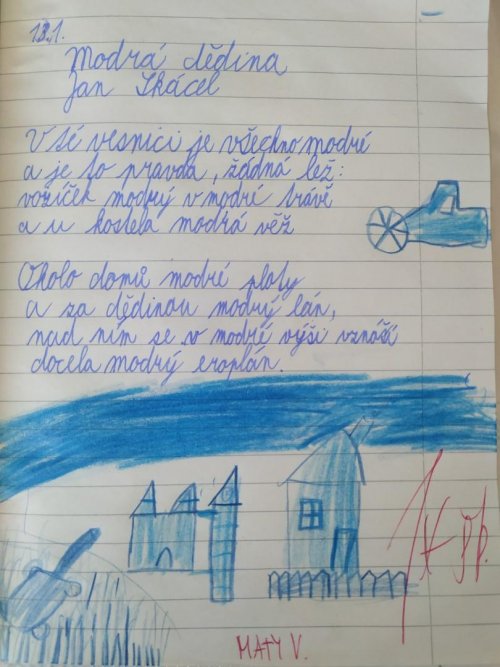 13.1.
Modrá dědina
Jan Skácel
V té vesnici je všechno modré
a je to pravda, žádná lež:
vozíček modrý v modré trávě
a u kostela modrá věž
Okolo domů modré ploty
a za dědinou modrý lán,
nad ním se v modré výši vznáší
docela modrý eroplán.
MATY V.